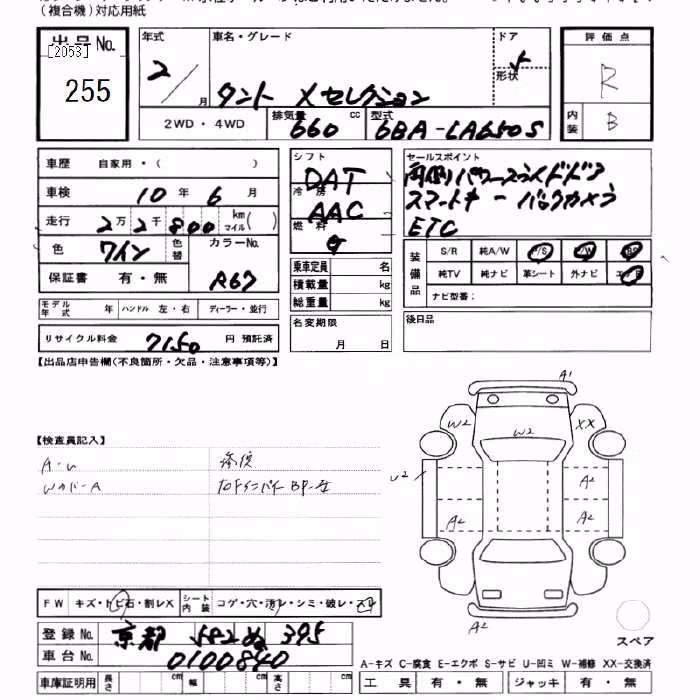 (複合機)対応用紙
出品No.
[2053]
255
年式
2/
月
車名・グレード
タント Xセレクション
ドア
5
形状
評価点
R
内装
B
2WD・4WD
排気量
660
cc
型式
6BA-LA650S
車歴 自家用・( )
車検 10年 6月
走行 2万2千800 km マイル( )
色 ワイン
色替
カラーNo.
保証書 有・無
R67
モデル年式 年 ハンドル 左・右 ディーラー・並行
リサイクル料金 7150 円 預託済
シフト
DAT
冷房
AAC
燃料
G
乗車定員 名
積載量 kg
総重量 kg
名変期限
月 日
セールスポイント
両側パワースライドドア
スマートキー バックカメラ
ETC
装備品
S/R 純A/W P/S P/W
純TV 純ナビ 革シート 外ナビ
ナビ型番:
後日品
【出品店申告欄(不良箇所・欠品・注意事項等)】
【検査員記入】
A・U
修復
WカバーA
A1
W2
W2
XX
U2
A2
A2
A2
A2
A2
FW キズ・トビ石・割レX
シート内装
コゲ・穴・汚レ・シミ・破レ・スレ
登録No. 京都 582 ぬ 395
車台No. 0100840
車庫証明用 長さ cm 幅 cm 高さ cm
スペア
A-キズ C-腐食 E-エクボ S-サビ U-凹ミ W-補修 XX-交換済
工具 有・無 ジャッキ 有・無